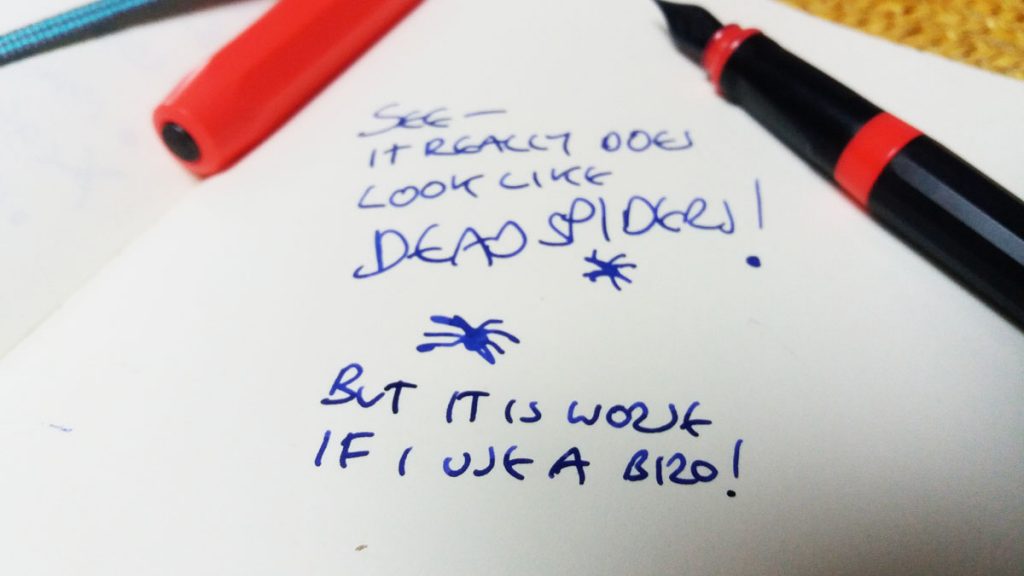 SEE —
IT REALLY DOES
LOOK LIKE
DEAD SPIDERS!
BUT IT IS WORSE
IF I USE A BIRO!